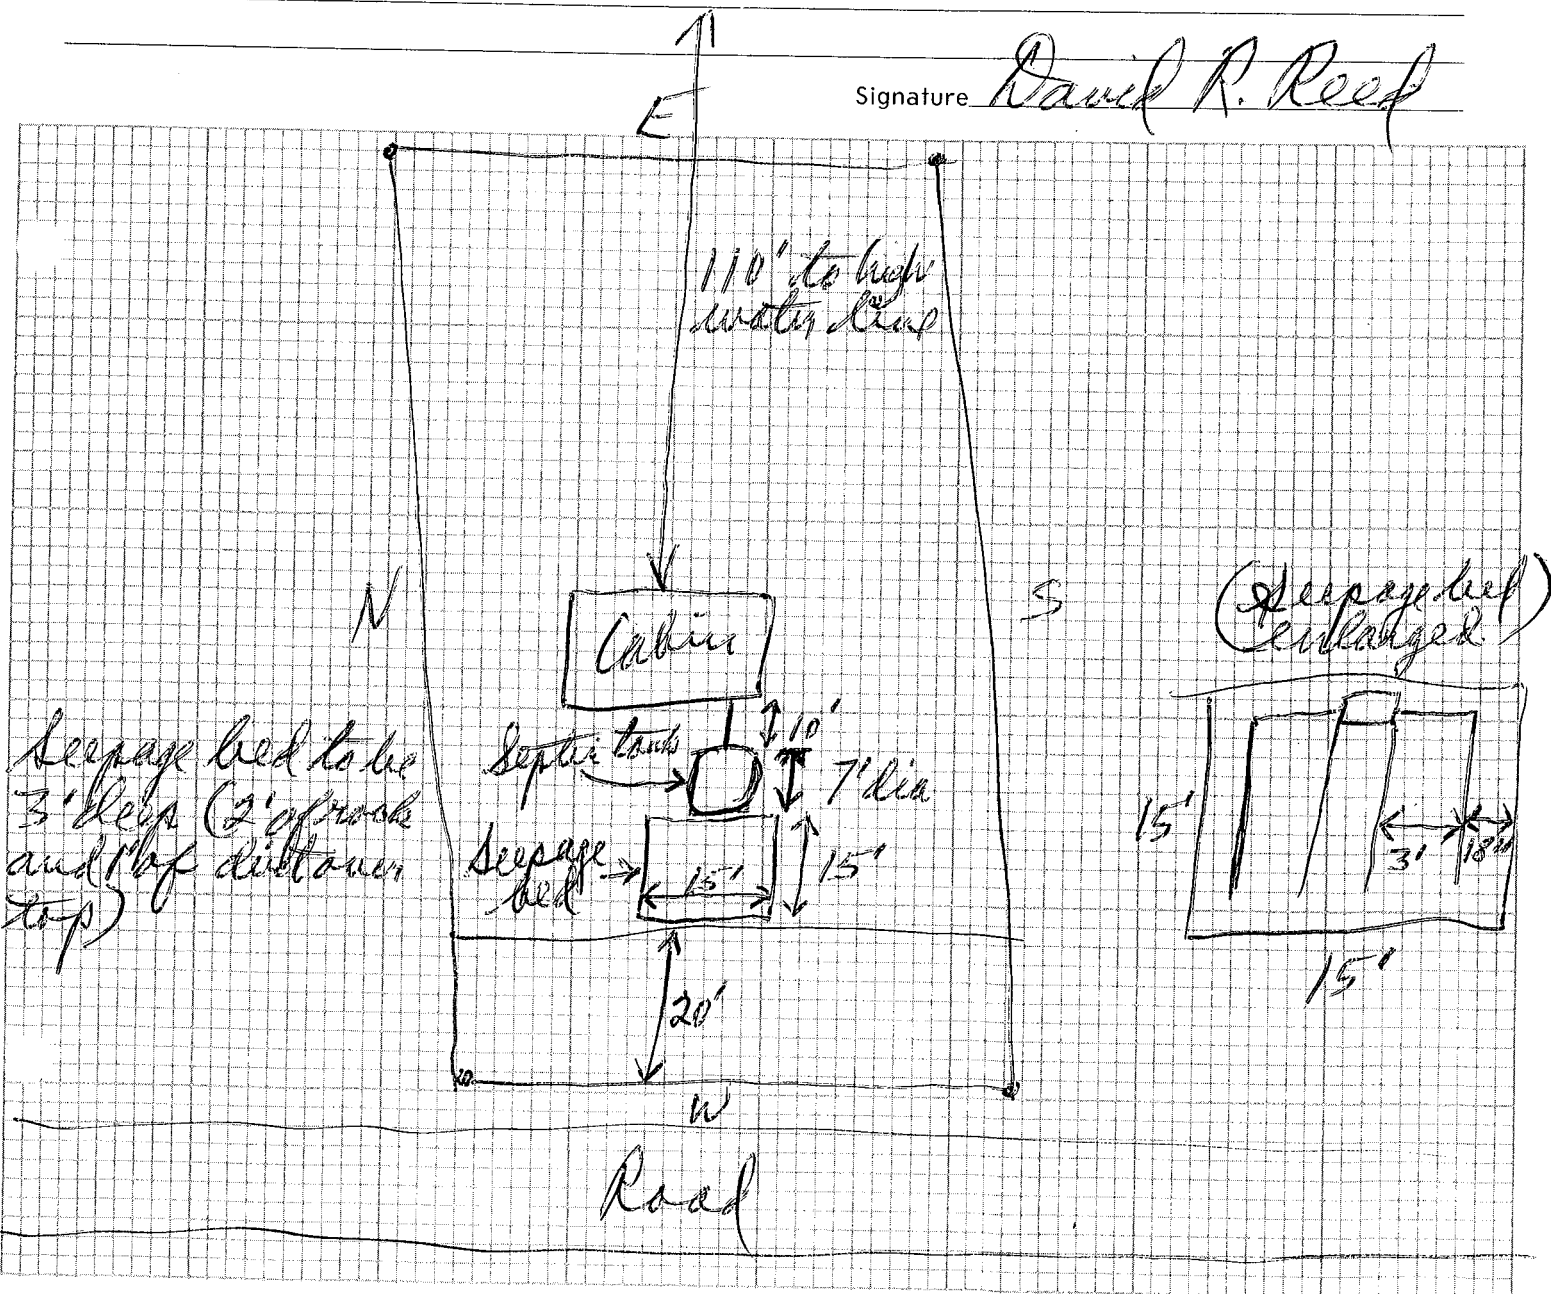 Signature David R. Reed
E
110' to high
water line
N
S
(Seepage bed
enlarged)
Cabin
10'
Septic tank
7' dia
Seepage bed to be
3' deep (2' of rock
and 1' of dirt over
top)
Seepage
bed
15'
15'
15'
3'
18"
15'
20'
W
Road